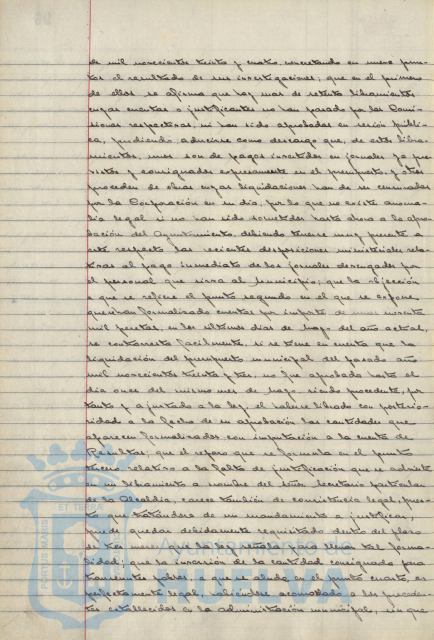 de mil novecientos treinta y cuatro, concretando en nueve puntos el resultado de sus investigaciones; que en el primero
de ellos se afirma que hay mas de setenta libramientos
cuyas cuentas o justificantes no han pasado por las Comisiones respectivas, ni han sido aprobadas en sesión pública, pudiendo aducirse como descargo que, de estos libramientos, unos son de pagos invertidos en jornales ya previstos y consignados expresamente en el presupuesto, y otros
proceden de obras cuyas liquidaciones han de ser
por la Corporación en su dia, por lo que no existe anomalia legal si no han sido sometidos hasta ahora a la aprobación del Ayuntamiento, debiendo tenerse muy presente a
este respecto las recientes disposiciones ministeriales relativas al pago inmediato de los jornales devengados por
el personal que sirva al Municipio; que la objeción
a que se refiere el punto segundo en el que se expone,
que eran formalizado cuentas por importe de unas noventa
mil pesetas, en los últimos dias de mayo del año actual,
se contrarresta facilmente, si se tiene en cuenta que la
liquidación del presupuesto municipal del pasado año
mil novecientos treinta y tres, no fue aprobada hasta el
dia once del mismo mes de mayo siendo procedente, por
tanto y ajustado a la ley el haberse librado con posterioridad a la fecha de su aprobación las cantidades que
aparecen formalizadas con imputación a la cuenta de
Resultas; que el reparo que se formula en el punto
tercero relativo a la falta de justificación que se advierte
en un libramiento a nombre del señor Secretario particular
de la Alcaldia, carece tambien de consistencia legal, puesto que tratándose de un mandamiento a justificar,
puede quedar debidamente requisitado dentro del plazo
de tres meses que la ley señala para llenar tal formalidad; que la inversión de la cantidad consignada para
transeuntes pobres, a que se alude en el punto cuarto, es
perfectamente legal, acomodado a los precedentes establecidos en la administración municipal, sin que
Ayuntamiento de
HUELVA
PORTUS MARIS
ET TERRAE